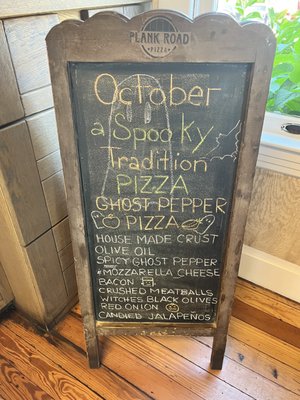 PLANK ROAD
PIZZA
October
a Spooky
Tradition
PIZZA
GHOST PEPPER
PIZZA
HOUSE MADE CRUST
OLIVE OIL
SPICY GHOST PEPPER
MOZZARELLA CHEESE
BACON
CRUSHED MEATBALLS
WITCHES BLACK OLIVES
RED ONION
CANDIED JALAPEÑOS